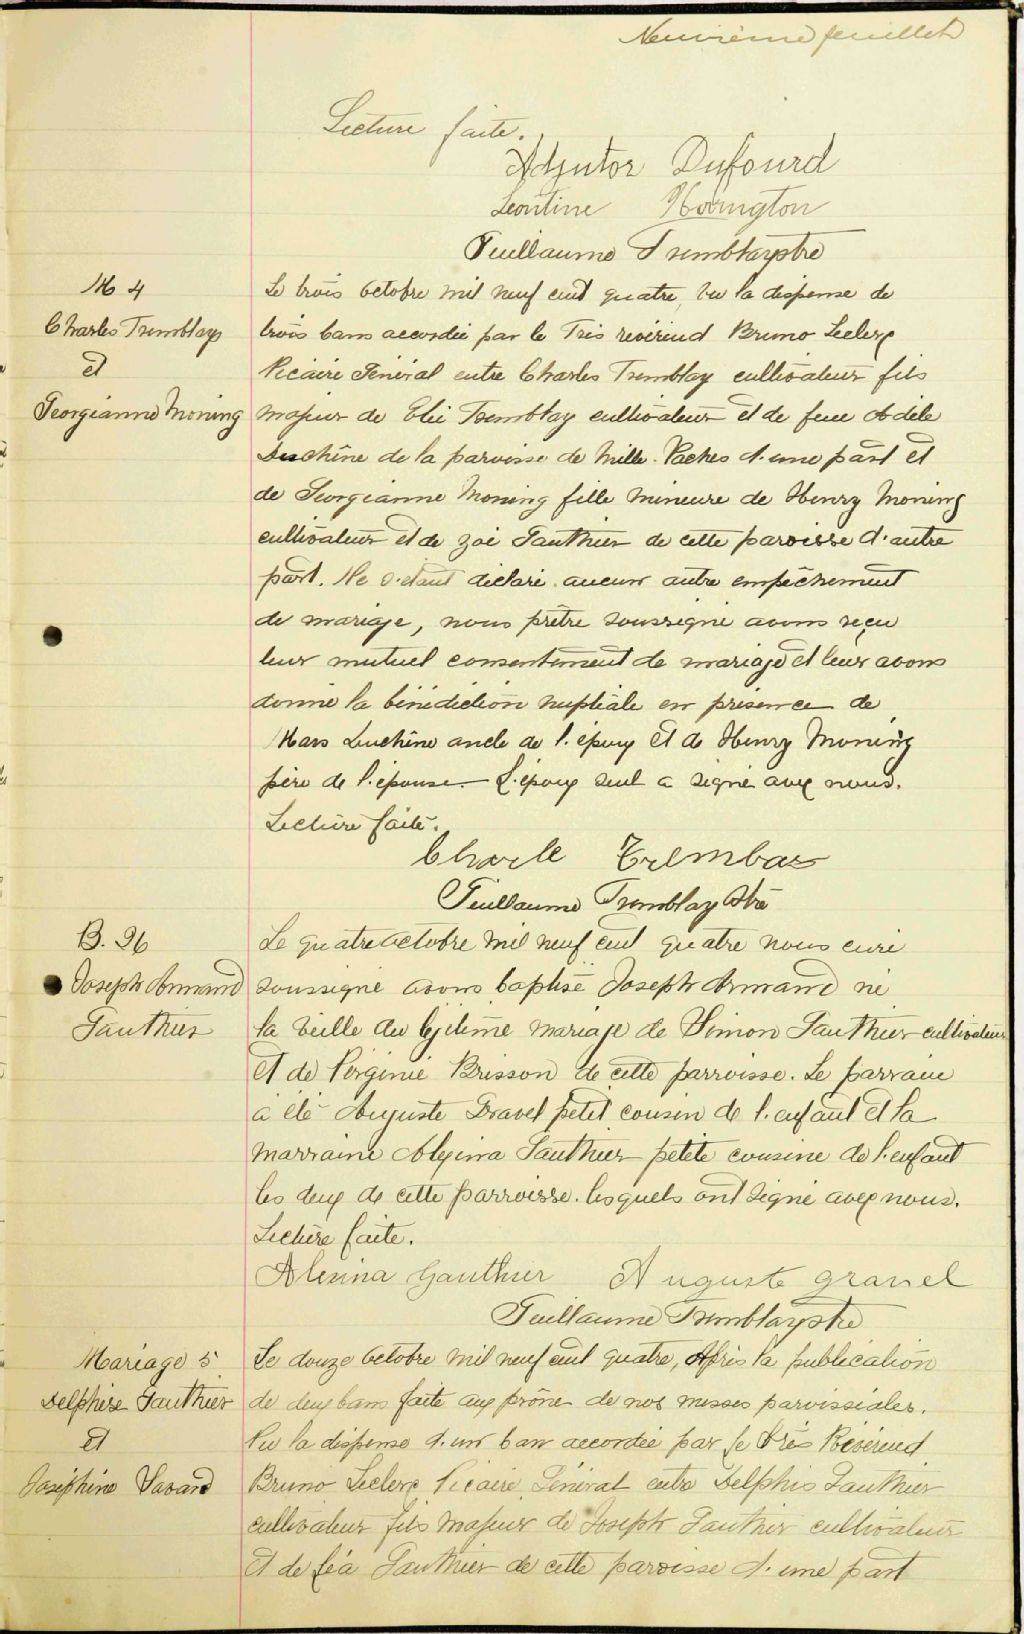 Neuvième feuillet
Lecture faite.
Adjutor Dufourd
Leontine Hovington
Guillaume Tremblay ptre
M 4
Charles Tremblay
et
Georgianne Moning
Le trois octobre mil neuf cent quatre, vu la dispense de
trois bans accordée par le Très révérend Bruno Leclerc
Vicaire Général entre Charles Tremblay cultivateur fils
majeur de Elie Tremblay cultivateur et de feue Adèle
Duchêne de la paroisse de Mille-Vaches d'une part et
de Georgianne Moning fille mineure de Henry Moning
cultivateur et de Zoé Gauthier de cette paroisse d'autre
part. Ne s'étant déclaré aucun autre empêchement
de mariage, nous prêtre soussigné avons reçu
leur mutuel consentement de mariage et leur avons
donné la bénédiction nuptiale en présence de
Mars Duchêne oncle de l'époux et de Henry Moning
père de l'épouse. L'époux seul a signé avec nous.
Lecture faite.
Charle Trembay
Guillaume Tremblay Ptre
B. 96
Joseph Armand
Gauthier
Le quatre octobre mil neuf cent quatre nous curé
soussigné avons baptisé Joseph Armand né
la veille du légitime mariage de Simon Gauthier cultivateur
et de Virginie Brisson de cette parroisse. Le parrain
a été Auguste Gravel petit cousin de l'enfant et la
marraine Alexina Gauthier petite cousine de l'enfant
les deux de cette parroisse. lesquels ont signé avec nous.
Lecture faite.
Alexina Gauthier Auguste gravel
Guillaume Tremblay ptre
Mariage 5
Delphise Gauthier
et
Joséphine Savard
Le douze octobre mil neuf cent quatre, Après la publication
de deux bans faite aux prône de nos messes paroissiales.
Vu la dispense d'un ban accordée par le très Révérend
Bruno Leclerc Vicaire Général entre Delphis Gauthier
cultivateur fils majeur de Joseph Gauthier cultivateur
et de Léa Gauthier de cette paroisse d'une part